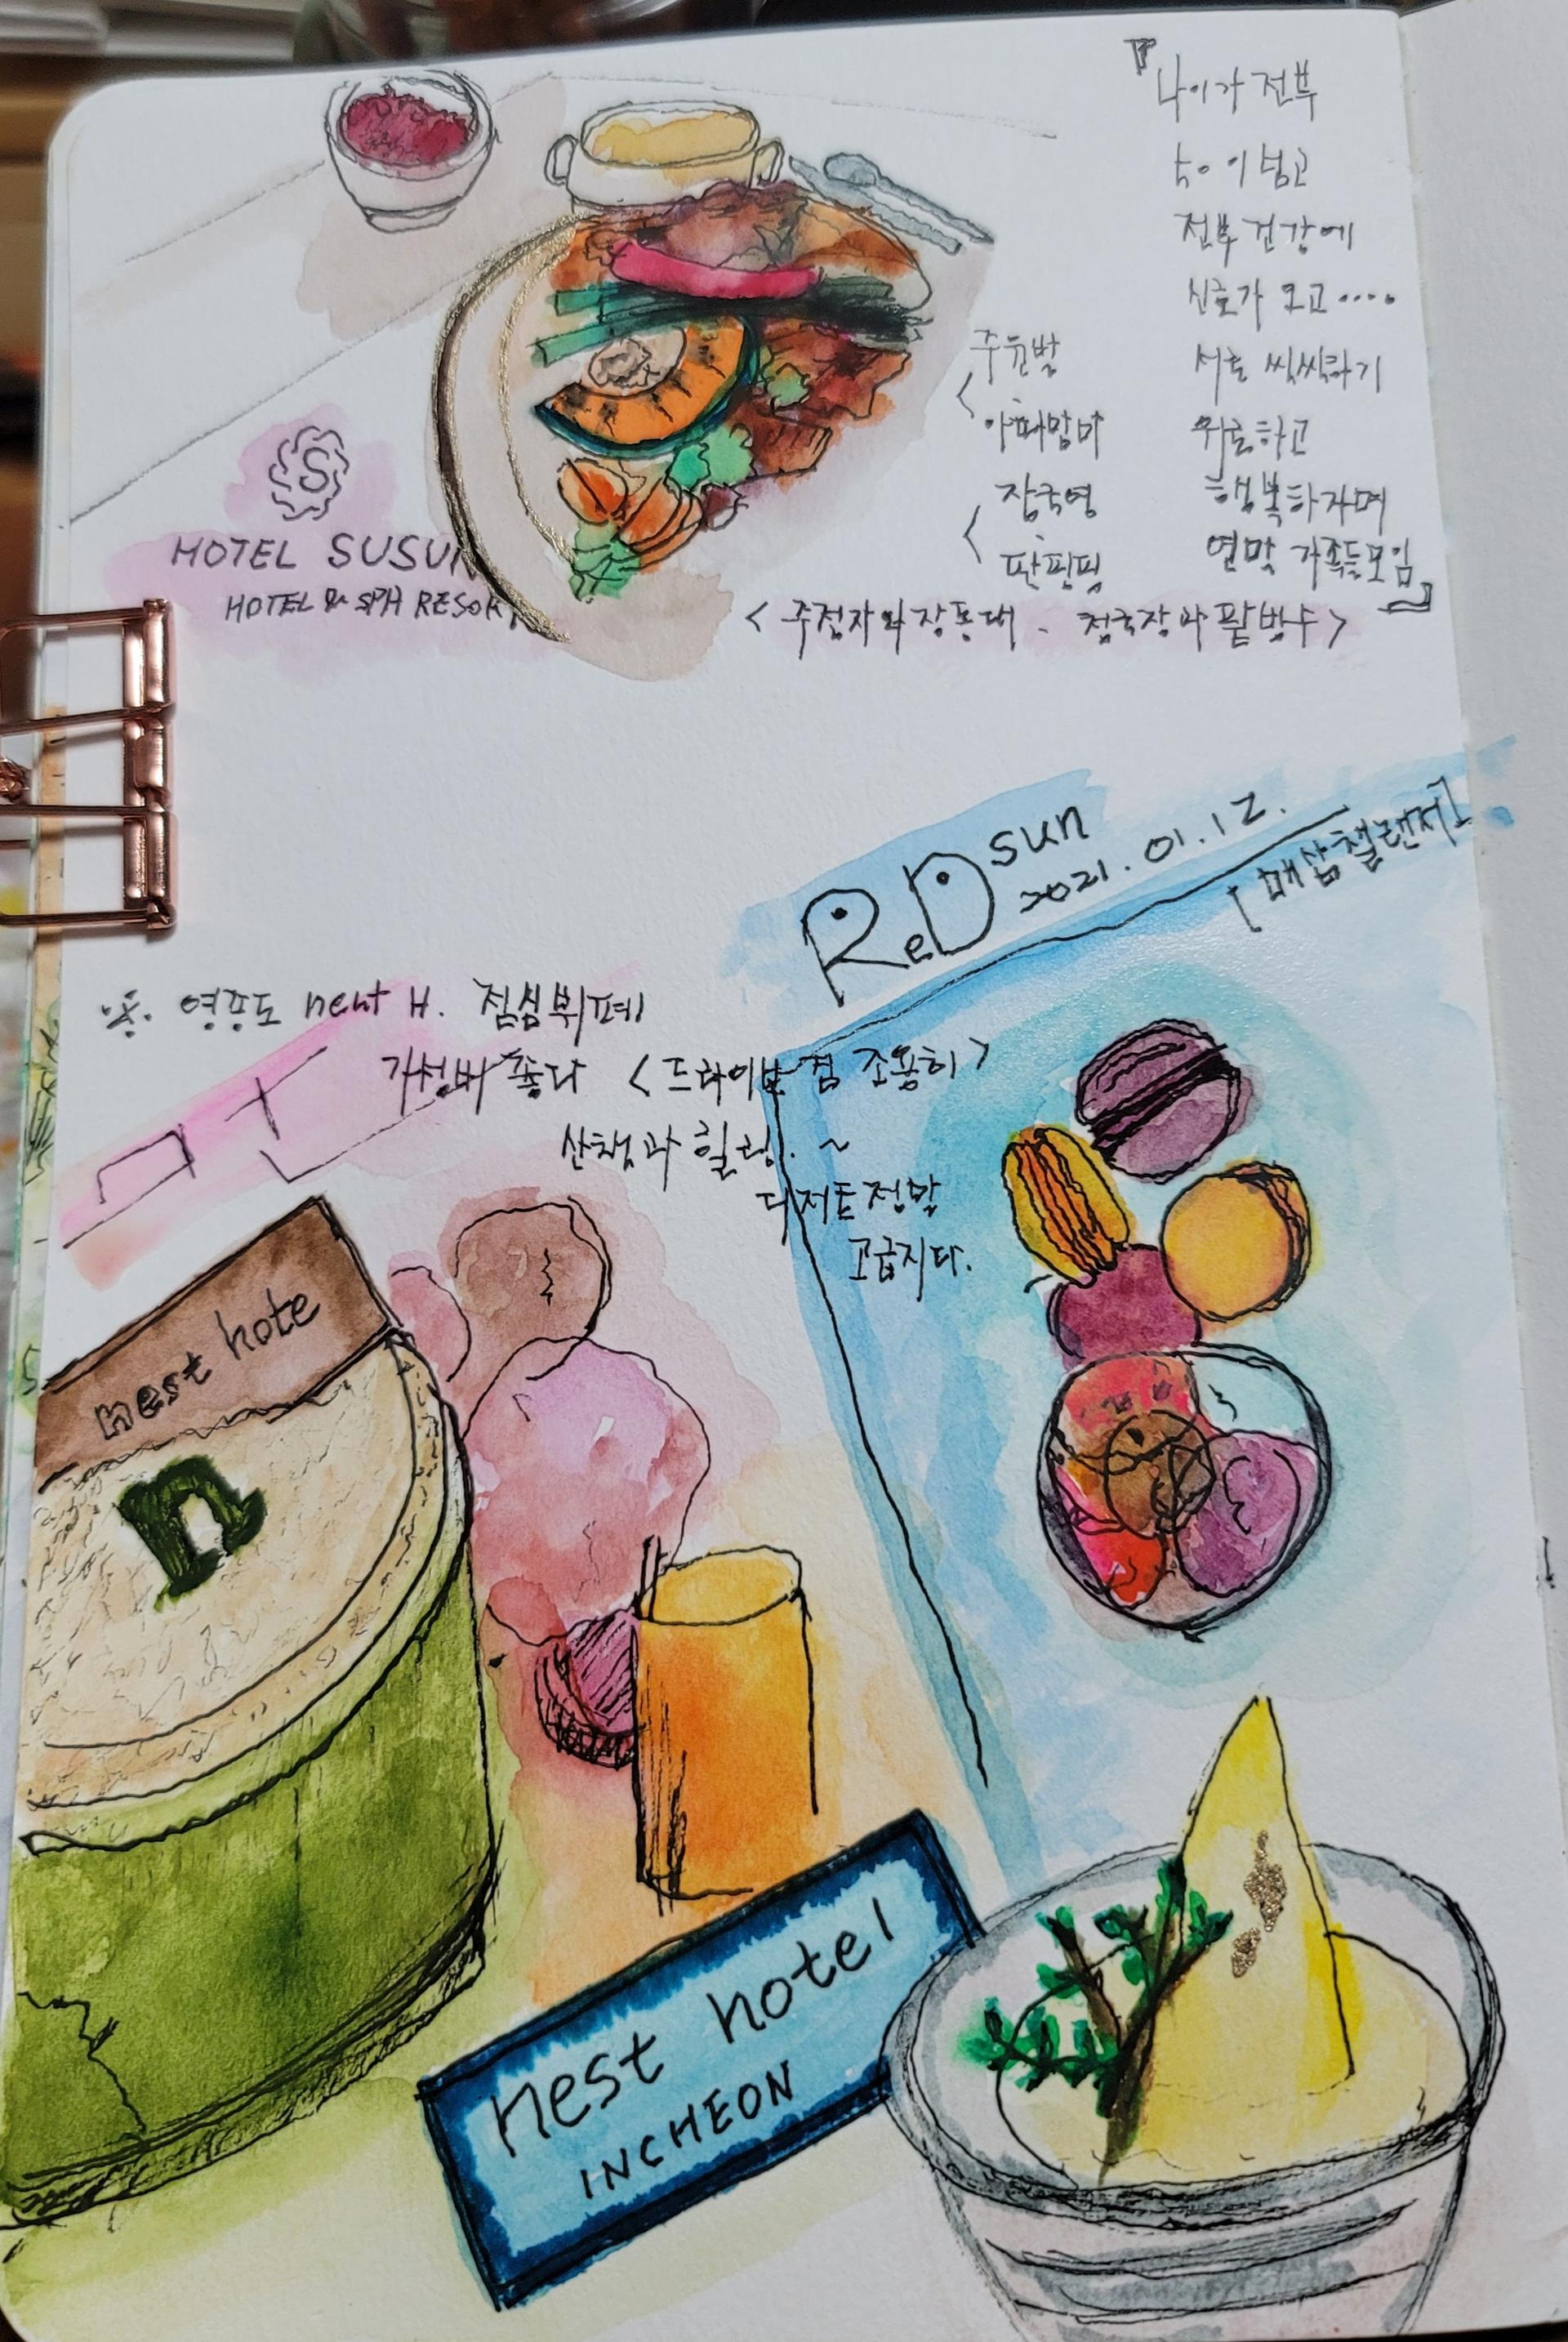 『나이가 전부
50이 넘고
전부 건강에
신호가 오고....
서로 씩씩하기
위로하고
행복하자며
연말 가족들모임』
주윤발
아빠맘마
장국영
판핑핑
<주전자와 장동대 - 청국장과 팥빙수>
S
HOTEL SUSUN
HOTEL & SPA RESORT
ReD sun
2021.01.12.
[매삼챌랜지]
※. 영종도 nest H. 점심뷔페
가성비 좋다 <드라이브 겸 조용히>
산책과 힐링. ~
디저트 정말
고급지다.
nest hote
n
nest hotel
INCHEON